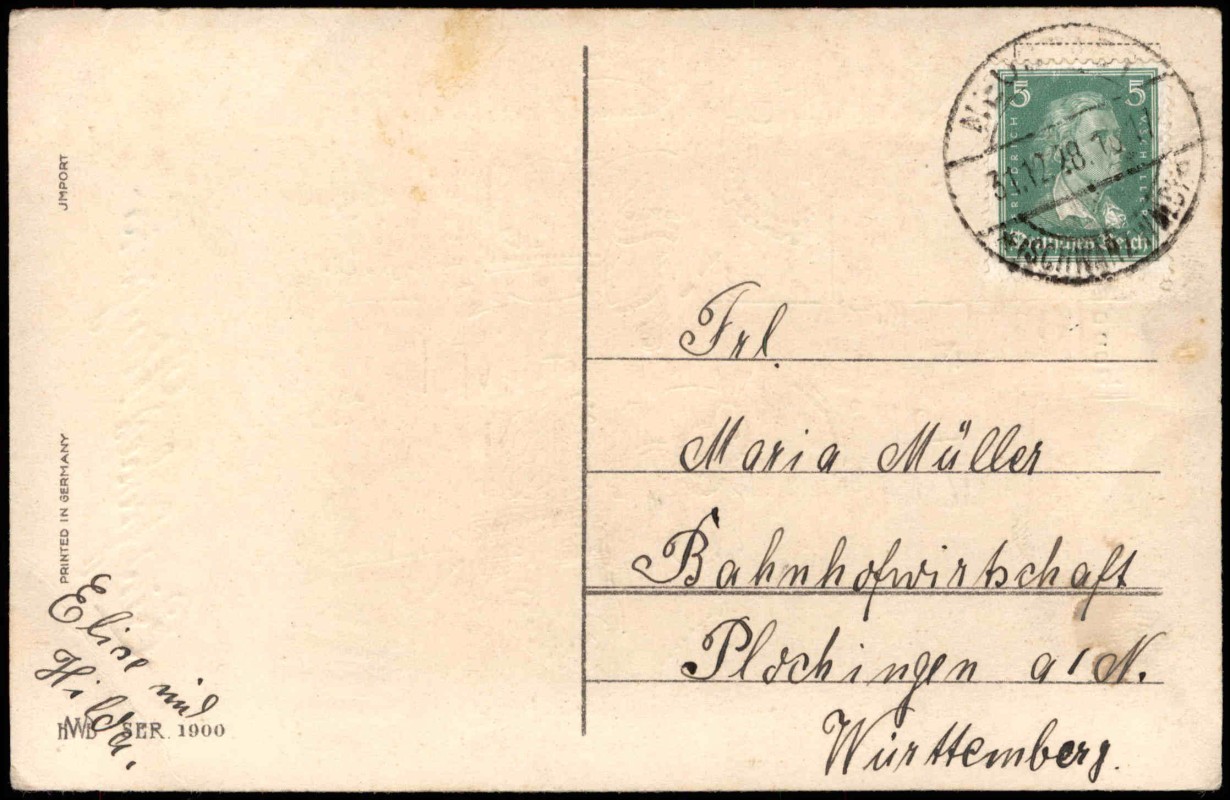 JMPORT
PRINTED IN GERMANY
Elise und
Hilda.
HWB SER. 1900
5 5
FRIEDRICH
Deutsches Reich
31.12.28.
Frl.
Maria Müller
Bahnhofwirtschaft
Plochingen a/N.
Württemberg.